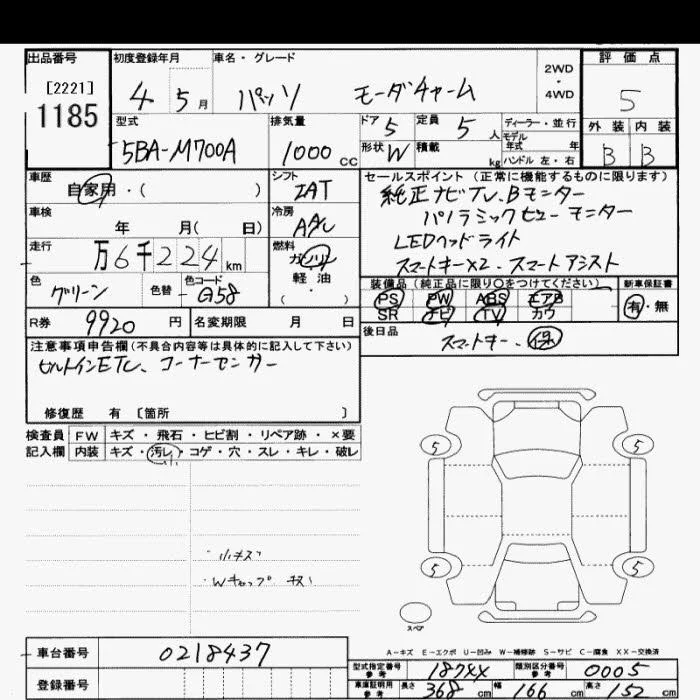 出品番号 初度登録年月 車名・グレード 2WD・4WD 評価点
[2221] 1185 4 5月 パッソ モーダチャーム 5
型式 排気量 ドア 5 定員 5人 ディーラー・並行 外装 内装
5BA-M700A 1000cc 形状 W 積載 kg モデル年式 年 ハンドル 左・右 B B
車歴 自家用・( ) シフト IAT セールスポイント (正常に機能するものに限ります)
車検 年 月( 日) 冷房 AAC 純正ナビTV、Bモニター
パノラミックビューモニター
走行 万6千224km 燃料 ガソリン・軽油・( ) LEDヘッドライト
スマートキー×2、スマートアシスト
色 グリーン 色替 色コード G58 装備品(純正品に限り〇をつけてください) 新車保証書
PS PW ABS エアB 有・無
SR ナビ TV カワ
R券 9920円 名変期限 月 日 後日品 スマートキー、保
注意事項申告欄(不具合内容等は具体的に記入して下さい)
ビルトインETC、コーナーセンサー
修復歴 有 [箇所 ]
検査員 FW キズ・飛石・ヒビ割・リペア跡・×要
記入欄 内装 キズ・汚レ・コゲ・穴・スレ・キレ・破レ
小
5 5
・小キズ
・Wキャップ キズ
5 5
スペア
A-キズ E-エクボ U-凹み W-補修跡 S-サビ C-腐食 XX-交換済
車台番号 0218437
型式指定番号 参考 18744 類別区分番号 参考 0005
登録番号 車庫証明用 参考 長さ 368cm 幅 166cm 高さ 152cm